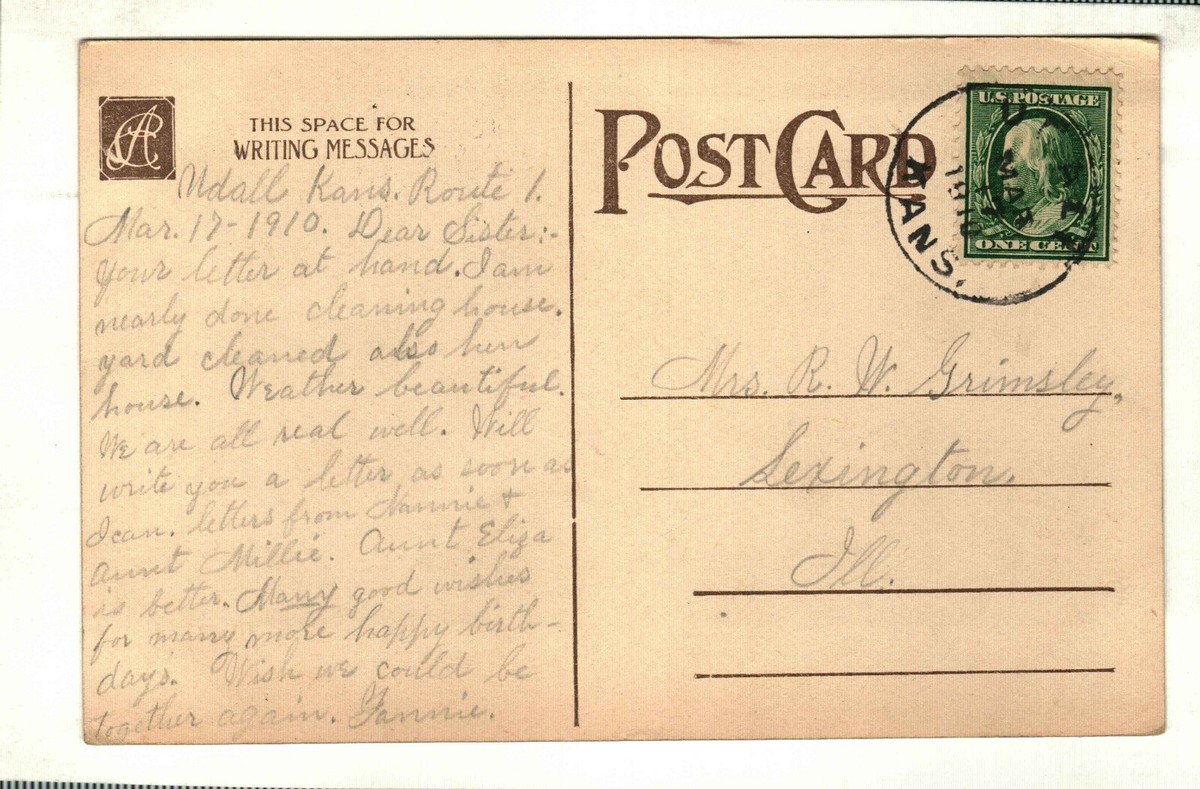 THIS SPACE FOR
WRITING MESSAGES
Udall Kans. Route 1.
Mar. 17-1910. Dear Sister:-
Your letter at hand. I am
nearly done cleaning house.
yard cleaned also hen
house. Weather beautiful.
We are all real well. Will
write you a letter as soon as
I can. letters from Nannie +
Aunt Millie. Aunt Eliza
is better. Many good wishes
for many more happy birth-
days. Wish we could be
together again. Fannie.
POST CARD
U.S. POSTAGE
ONE CENT
UDALL
MAR
17
1910
KANS.
Mrs. R. W. Grimsley,
Lexington.
Ill.